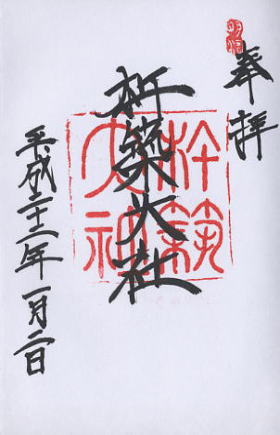 奉拝
杵築大社
杵築大社
平成二十二年一月二日